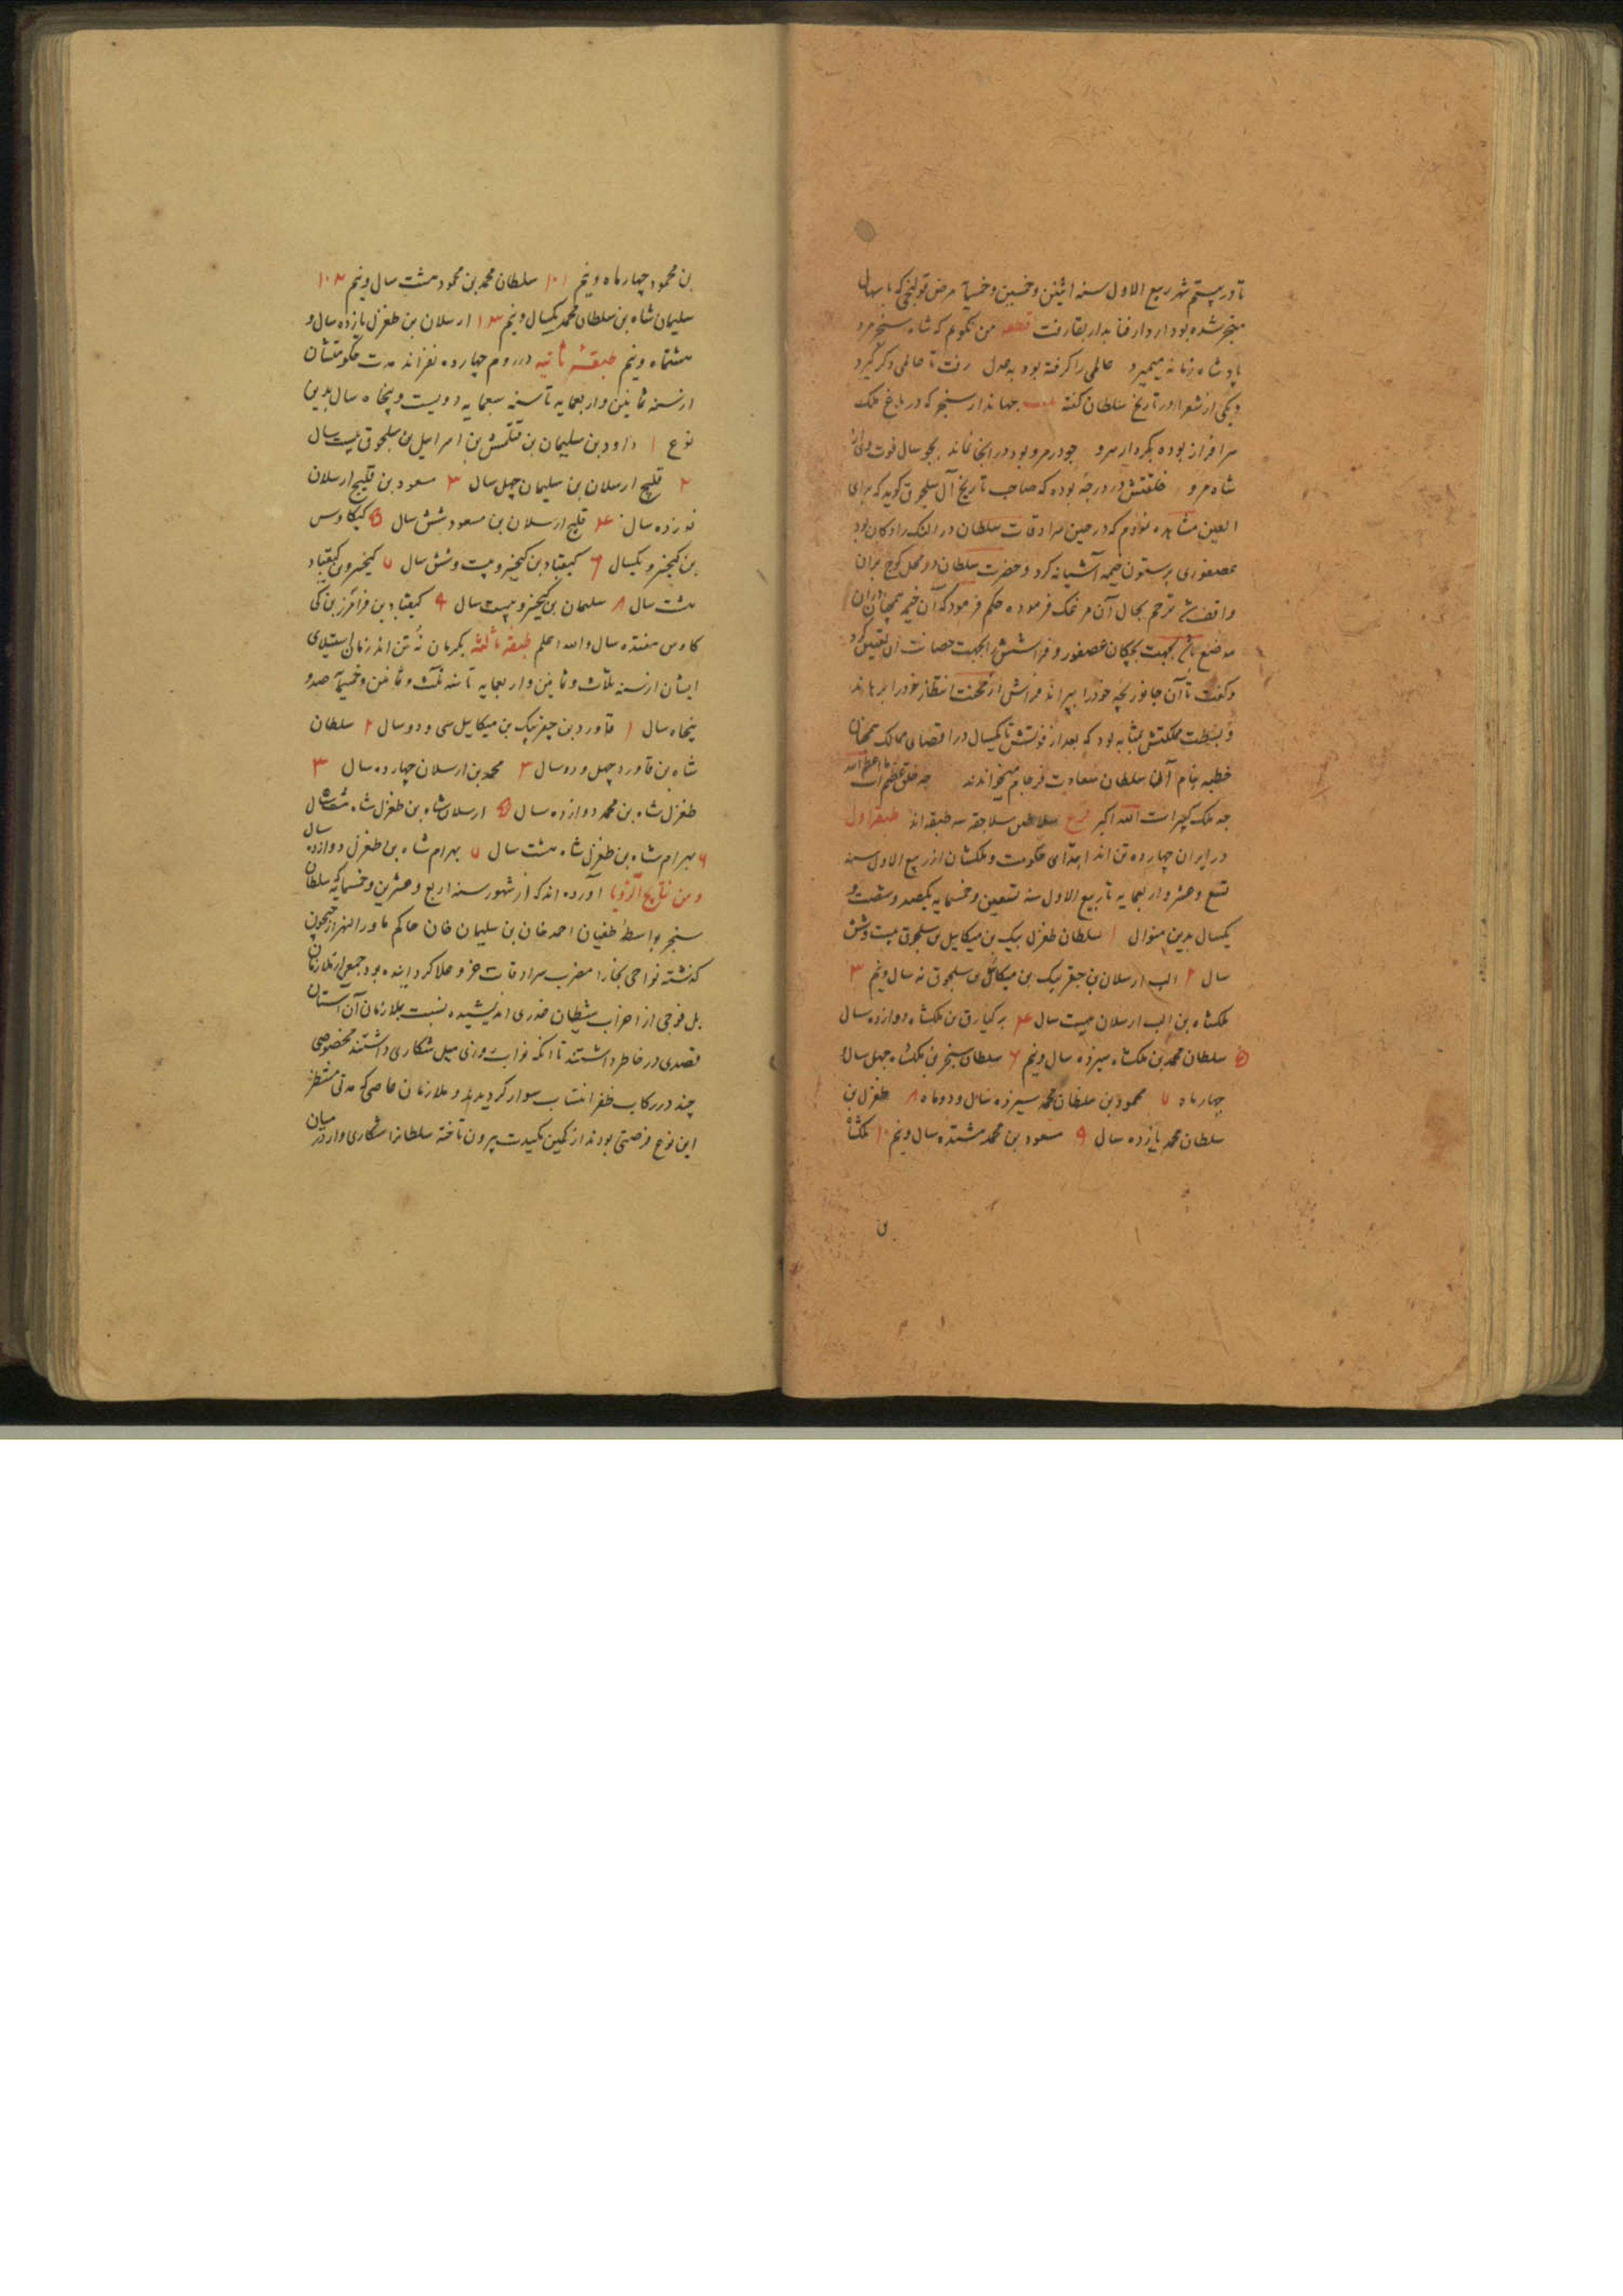 تا در بیستم شهر ربیع الاول سنه اثنین و خمسین و خمسمایة مرض قولنجی که باسهال
منجر شده بود از دار فنا بدار بقا رفت قطعه من نکویم که شاه سنجر مرد
پادشاه زمانه نمیرد عالمی را کرفته بود بعدل رفت تا عالمی دکر کیرد
و یکی از شعرا در تاریخ سلطان کفته جهاندار سنجر که در باغ ملک
سرافراز بوده بکردار سرو چو در مرو بود در انجا نماند بجو سال فوت وی از
شاه مرو خلقتش در درجه بوده که صاحب تاریخ آل سلجوق کوید که برای
العین مشاهده نمودم که در حین سرادقات سلطان در النک رادکان بود
عصفوری بر ستون خیمه آشیانه کرد و حضرت سلطان در محل کوچ بران
واقف شد ترحم بحال آن مرغک فرموده حکم فرمود که آن خیمه همچنان دران
موضع بجهت بچکان عصفور و فراشش را بجهت حصانت آن تعیین کرد
و کفت تا آن جانور بچه خود را بپراند فراش از محنت انتظار خود را برهاند
و بسطت مملکتش بمثابه بود که بعد از فوتش تا یکسال در اقصای ممالک همچنان
خطبه بنام آن سلطان سعادت فرجام میخواندند چه خلق عظیم است ما اعظم الله
چه ملک کبیر است الله اکبر سلاطین سلاجقه سه طبقه اند طبقه اول
در ایران چهارده تن اند ابتدای حکومت و ملکشان از ربیع الاول سنه
تسع و عشر و اربعمایه تا ربیع الاول سنه تسعین و خمسمایه یکصد و شصت و
یکسال بدین منوال ۱ سلطان طغرل بیک بن میکاییل بن سلجوق بیست و شش
سال ۲ الب ارسلان بن جغربیک بن میکاییل بن سلجوق نه سال و نیم ۳
ملکشاه بن الب ارسلان بیست سال ۴ برکیارق بن ملکشاه دوازده سال
۵ سلطان محمد بن ملکشاه سیزده سال و نیم ۶ سلطان سنجر بن ملکشاه چهل سال
چهار ماه ۷ محمود بن سلطان محمد سیزده سال و دو ماه ۸ طغرل بن
سلطان محمد یازده سال ۹ مسعود بن محمد هشتده سال و نیم ۱۰ ملکشاه
بن
بن محمود چهار ماه و نیم ۱۰۱ سلطان محمد بن محمود هشت سال و نیم ۱۰۲
سلیمان شاه بن سلطان محمد یکسال و نیم ۱۳ ارسلان بن طغرل یازده سال و
هشتماه و نیم طبقه ثانیه در روم چهارده نفر اند مدت حکومتشان
از سنه ثمانین و اربعمایه تا سنه سبعمایه دویست و پنجاه سال بدین
نوع ۱ داود بن سلیمان بن قتلمش بن اسراییل بن سلجوق بیست سال
۲ قلیج ارسلان بن سلیمان چهل سال ۳ مسعود بن قلیج ارسلان
نوزده سال ۴ قلیج ارسلان بن مسعود شش سال ۵ کیکاوس
بن کیخسرو یکسال ۶ کیقباد بن کیخسرو بیست و شش سال ۷ کیخسرو بن کیقباد
هشت سال ۸ سلیمان بن کیخسرو بیست سال ۹ کیقباد بن فرامرز بن کی
کاوس هفتده سال والله اعلم طبقه ثالثه بکرمان نه تن اند زمان استیلای
ایشان از سنه ثلاث و ثمانین و اربعمایه تا سنه ثلث و ثمانین و خمسمایة صد و
پنجاه سال ۱ قاورد بن جغربیک بن میکاییل سی و دو سال ۲ سلطان
شاه بن قاورد چهل و دو سال ۳ محمد بن ارسلان چهارده سال ۳
طغرل شاه بن محمد دوازده سال ۵ ارسلان شاه بن طغرل شاه هشت سال
۶ بهرام شاه بن طغرل شاه هشت سال ۷ بهرام شاه بن طغرل دوازده سال
و من نتایج الرویا آورده اند که از شهور سنه اربع و عشرین و خمسمایه که سلطان
سنجر بواسطهٔ طغیان احمد خان بن سلیمان خان حاکم ماوراالنهر از جیحون
کذشته نواحی بخارا مضرب سرادقات عز و علا کردانیده بود جمعی از ملازمان
بل فوجی از احزاب شیطان غدری اندیشیده نسبت بملازمان آن آستان
قصدی در خاطر داشتند تا انکه نواب روزی میل شکاری داشتند مخصوصی
چند در رکاب ظفر انتساب سوار کردیدند و ملازمان عاصی که مدتی منتظر
این نوع فرصتی بودند از کمین مکیدت بیرون تاخته سلطانرا شکاری وار در میان